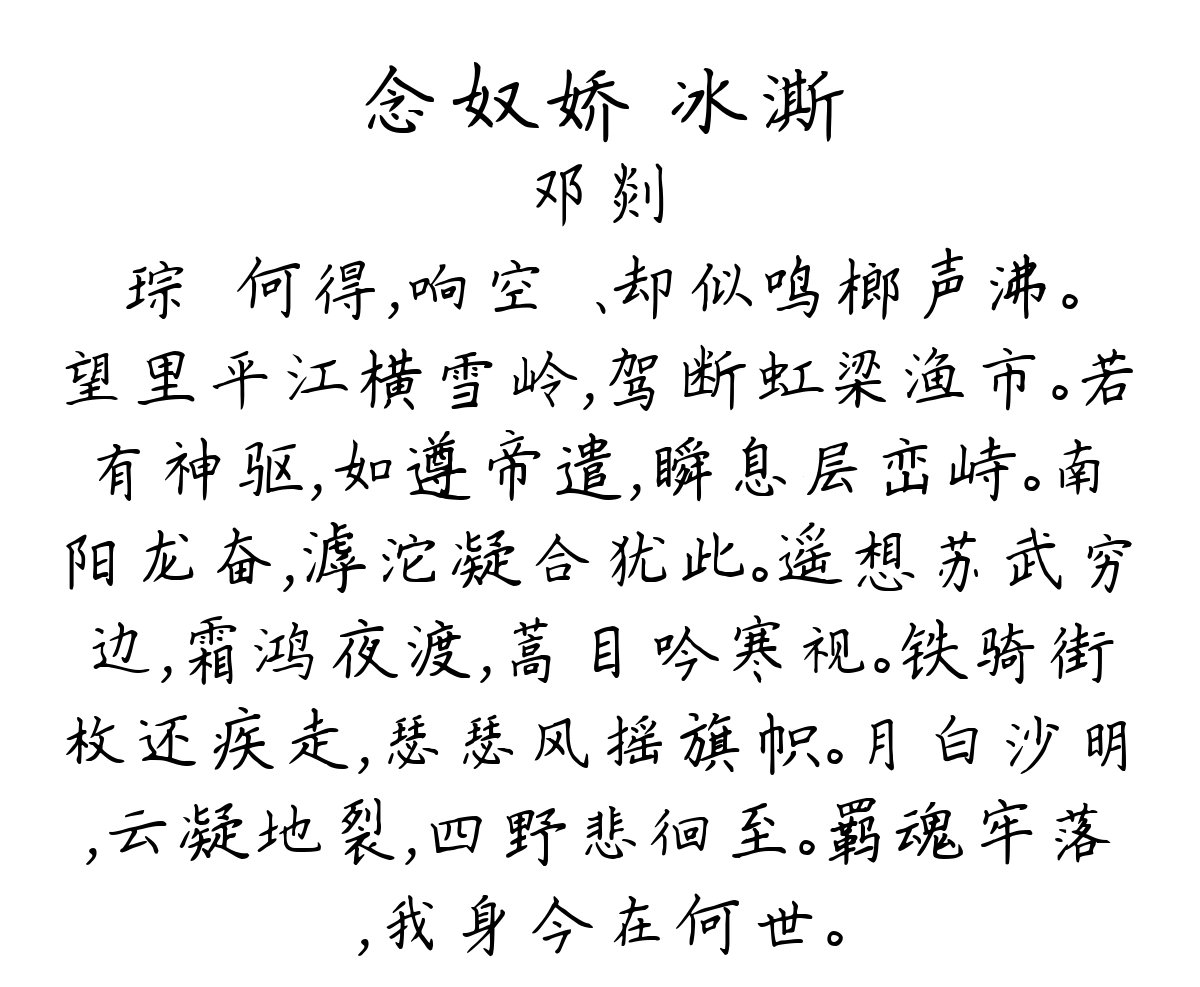 念奴娇 冰澌
邓剡
琮 何得,响空 、却似鸣榔声沸。
望里平江横雪岭,驾断虹梁渔市。若
有神驱,如遵帝遣,瞬息层峦峙。南
阳龙奋,滹沱凝合犹此。遥想苏武穷
边,霜鸿夜渡,蒿目吟寒视。铁骑街
枚还疾走,瑟瑟风摇旗帜。月白沙明
,云凝地裂,四野悲徊至。羁魂牢落
,我身今在何世。